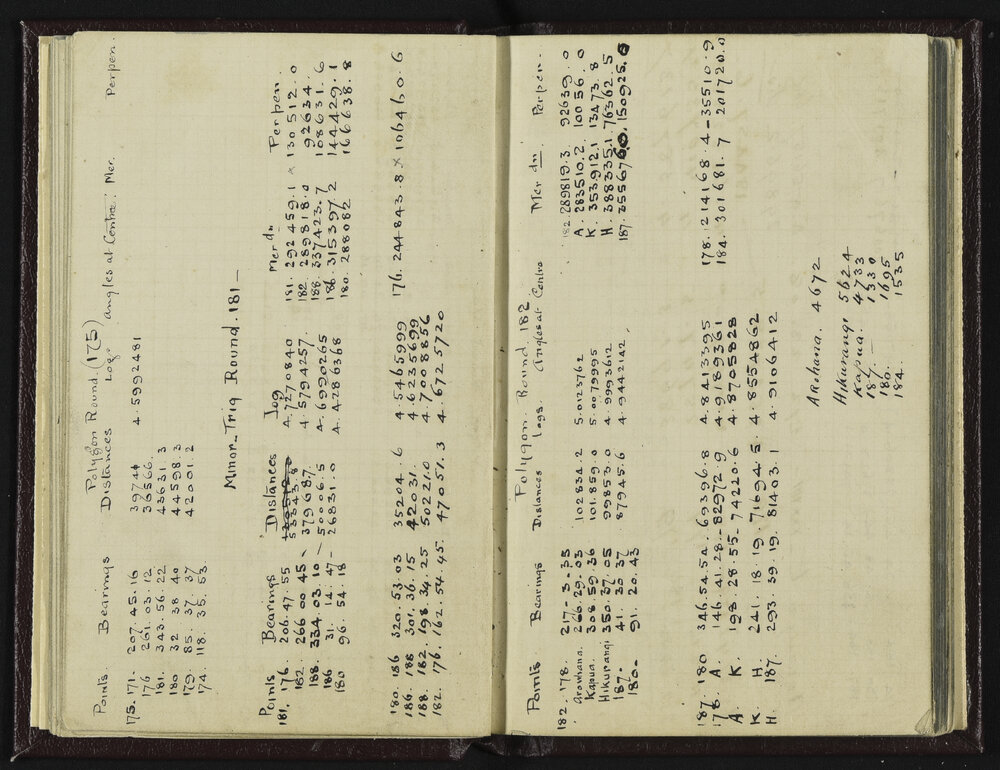 Polygon Round. (175)
Points Bearings Distances Logs angles at Centre. Mer. Perpen.
175. 171. 207. 45. 16 39744 4. 5992481
176 261. 03. 12 36566.
181. 343. 56. 22 43631 3
180 32. 38 40 44598. 3
179. 85. 37. 37 42001. 2
174. 118. 35. 53
Minor-Trig Round. 181-
Points Bearings Distances Log Mer dn Perpen
181. 176. 206. 47. 55 53343.8 4. 7270840 181. 292459. 1 × 130512. 0
182. 266 00 45 37968.7 4. 5794257 182. 289818. 0 92634.
188. 334. 03. 10 50006.5 4. 6990265 188. 337423. 7 108631. 6
186 31. 14. 47 26831. 0 4. 4286368 186. 315397. 2 144429. 1
180 96. 54. 18 180. 288082 166638. 8
180. 186 320. 53. 03 35204. 6 4 5465999 176. 244843. 8 × 106460. 6
186. 188 301. 36. 15 42031. 4 6235699
188. 182. 198. 34. 25 50221. 0 4. 7008856
182. 176. 162. 54. 45. 47051. 3 4. 6725720
Polygon Round. 182.
Points Bearings Distances Logs. Angles at Centre Mer dn Perpen.
182. 178. 217- 3- 35 102834. 2 5. 0123762 182. 289819. 3. 92639. 0
Arowhana. 266. 29. 03 101. 859. 0 5. 0079995 A. 283510. 2 10056. 0
Kapua. 308 59. 36 99853. 0 4. 9993612 K. 353912. 1 13473. 8
Hikurangi 350. 37. 05 87945. 6 4. 9442142, H. 388335. 1. 76362. 5
187- 41. 30. 37 187. 355676.0. 150925. 0
180- 91. 20. 43
187. 180 346. 54. 54. 69396. 8 4. 8413395 178. 214168. 4 - 35510. 9
178. A. 146. 41. 28. - 82972. 9 4. 9189361 184. 301681. 7 201720. 0
A. K. 198. 28. 55- 74220. 6 4. 8705828
K H. 241. 18. 19. 71694. 5. 4. 8554862
H. 187. 293. 39. 19. 81403. 1 4. 9106412
Arohana. 4672
Hikurangi 5624
Kapua. 4733
187. — 1330
186. 1695
184. 1535